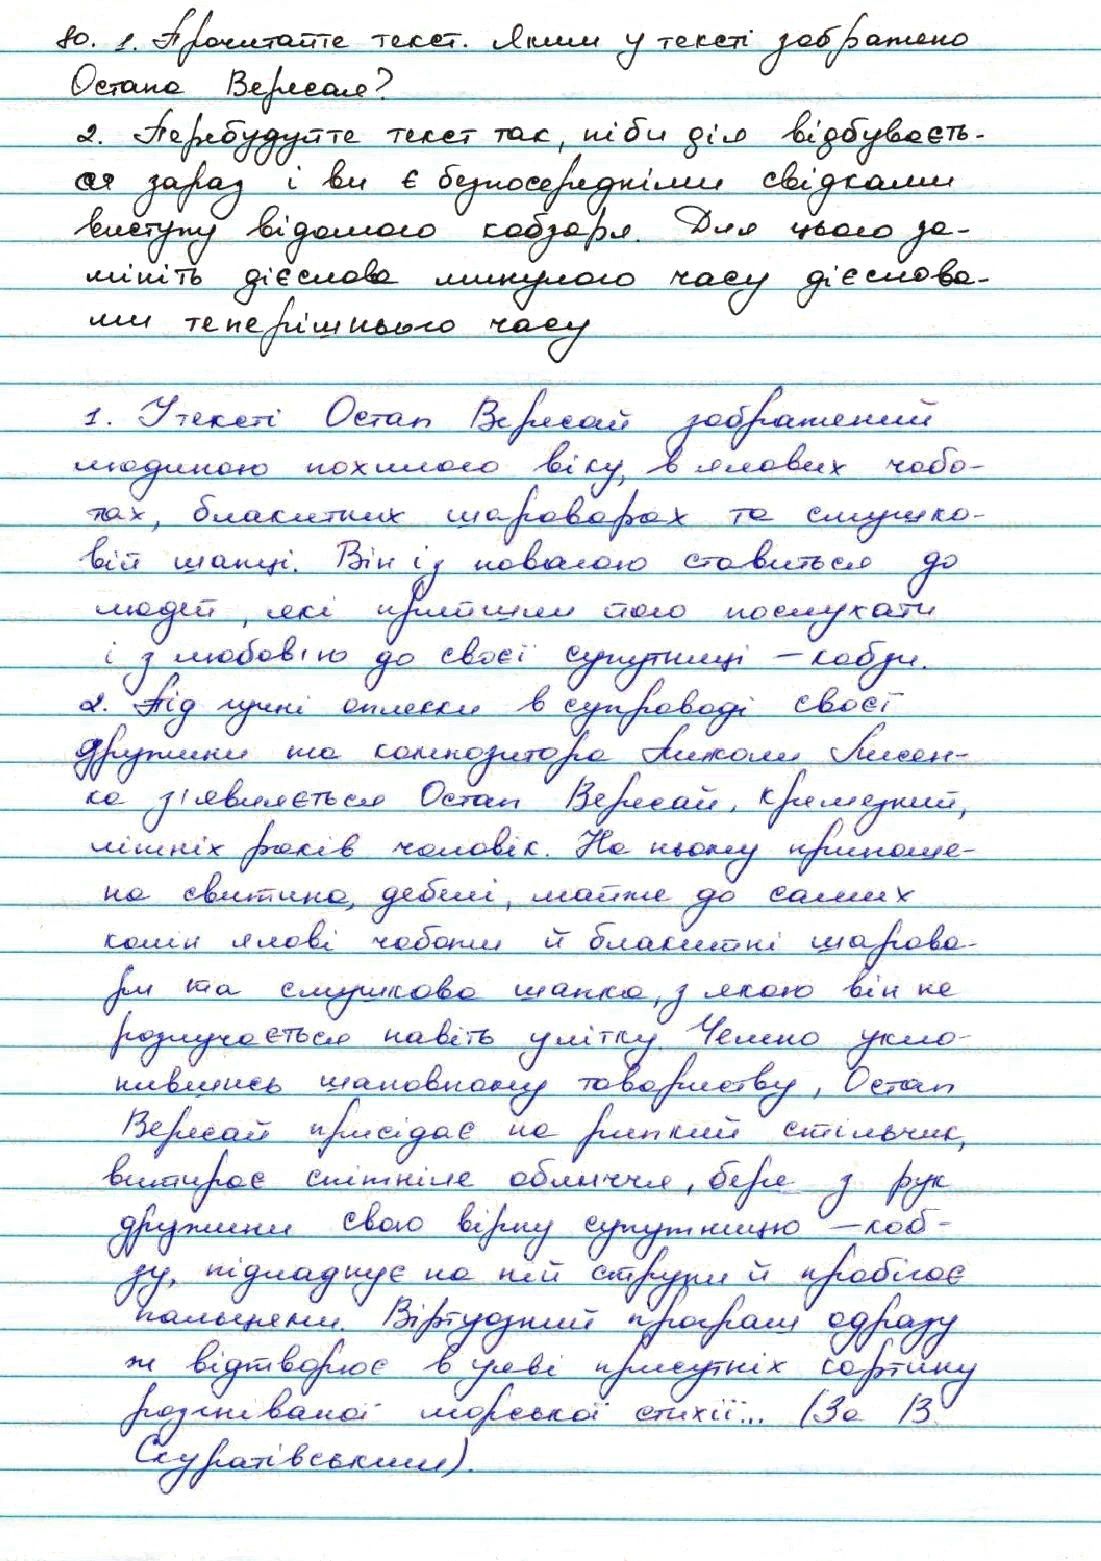 80. 1. Прочитайте текст. Яким у тексті зображено
Остапа Вересая?
2. Перебудуйте текст так, ніби дія відбуваєть-
ся зараз і ви є безпосередніми свідками
виступу відомого кобзаря. Для цього за-
мініть дієслова минулого часу дієслова-
ми теперішнього часу
1. У тексті Остап Вересай зображений
людиною похилого віку, в ялових чобо-
тах, блакитних шароварах та смушко-
вій шапці. Він із повагою ставиться до
людей, які прийшли його послухати
і з любов'ю до своєї супутниці – кобзи.
2. Під гучні оплески в супроводі своєї
дружини та композитора Миколи Лисен-
ка з'являється Остап Вересай, кремезний,
літніх років чоловік. На ньому приноше-
на свитина, дебелі, майже до самих
колін ялові чоботи й блакитні шарова-
ри та смушкова шапка, з якою він не
розлучається навіть улітку. Чемно укло-
нившись шановному товариству, Остап
Вересай присідає на рипкий стільчик,
витирає спітніле обличчя, бере з рук
дружини свою вірну супутницю – коб-
зу, підладнує на ній струни й пробігає
пальцями. Віртуозний програш одразу
ж відтворює в уяві присутніх картину
розгніваної морської стихії... (За В.
Скуратівським).